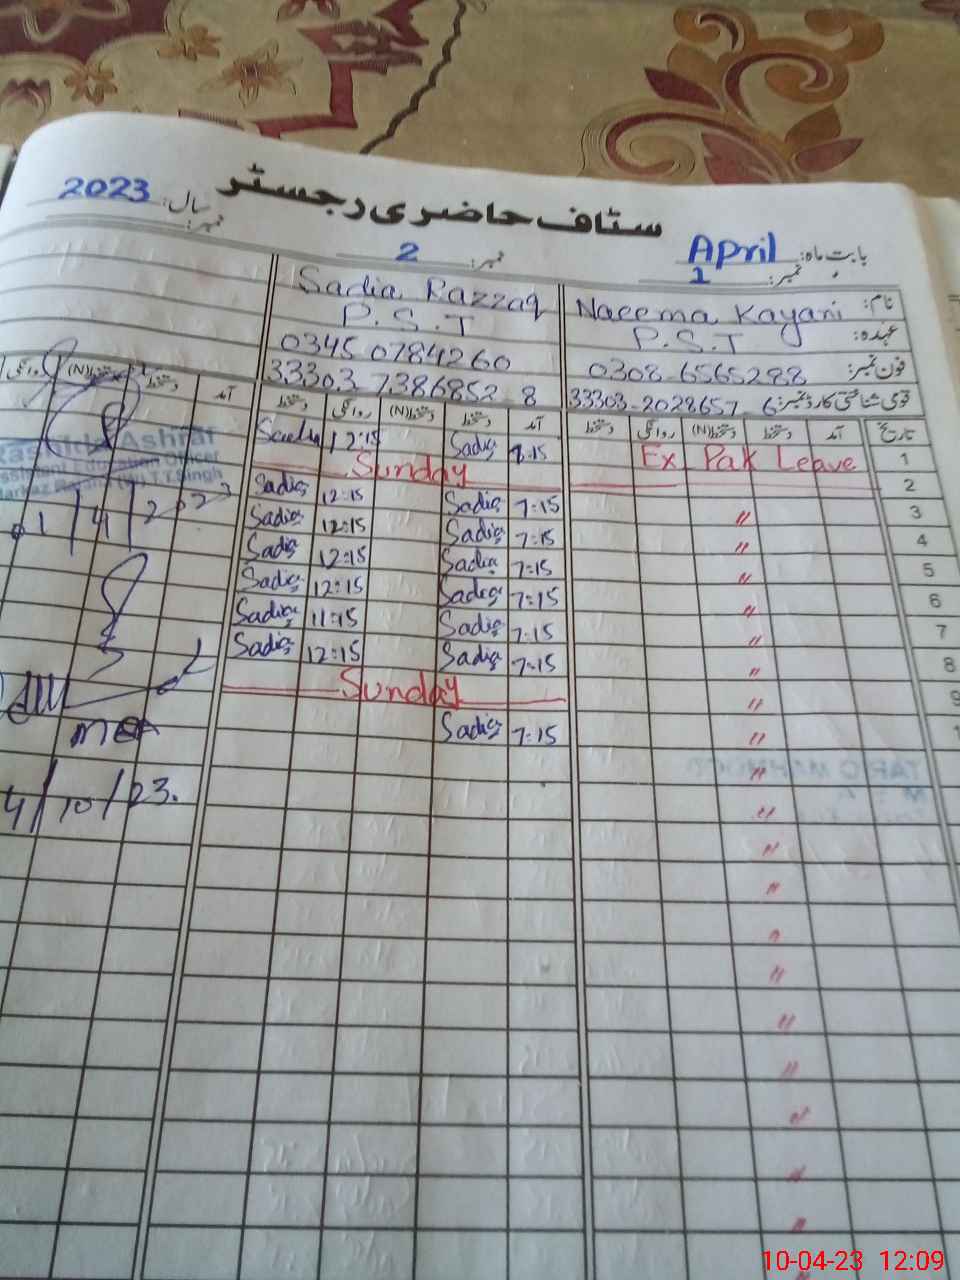 سٹاف حاضری رجسٹر
بابت ماہ: April سال: 2023
نمبر: 1 نمبر: 2 نمبر:
نام: Naeema Kayani Sadia Razzaq
عہدہ: P.S.T P.S.T
فون نمبر: 0308-6565288 0345 0784260
قومی شناختی کارڈ نمبر: 33303-2028657-6 33303 7386852-8
تاریخ آمد دستخط دستخط(N) روانگی دستخط آمد دستخط دستخط(N) روانگی دستخط آمد دستخط دستخط(N) روانگی
1 Ex Pak Leave 8:15 Sadia 12:15 Sadia
2 Sunday
3 〃 7:15 Sadia 12:15 Sadia
4 〃 7:15 Sadia 12:15 Sadia
5 〃 7:15 Sadia 12:15 Sadia
6 〃 7:15 Sadia 12:15 Sadia
7 〃 7:15 Sadia 11:15 Sadia
8 〃 7:15 Sadia 12:15 Sadia
9 〃 Sunday
1 〃 7:15 Sadia
Ashraf
Education Officer
T.T.Singh
1/4/2023
MEA
4/10/23.
TARIQ MAHMOOD
10-04-23 12:09